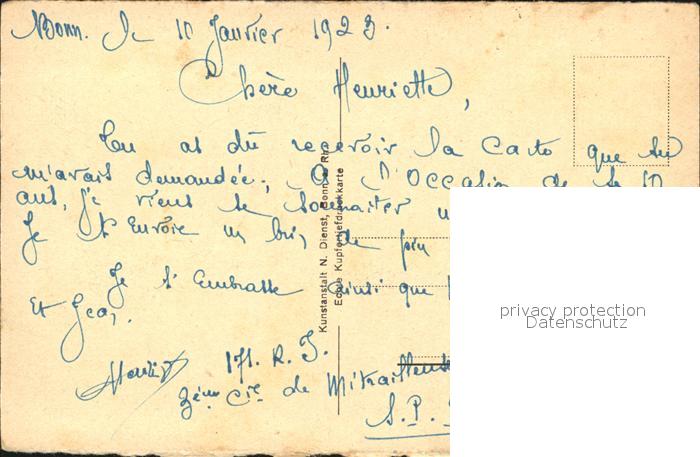 Bonn. le 10 Janvier 1923.
Chère Henriette,
Tu as dû recevoir la Carte que tu
m'avais demandée; à l'Occasion de te 10
ans, je viens te Souhaiter
Je t'Envoie un de fin
Je t'Embrasse ainsi que
Et Jean.
171. R. I.
3ème Cie de Mitrailleuse
S.P.
Kunstanstalt N. Dienst, Bonn a. Rh.
Echte Kupfertiefdruckkarte
privacy protection
Datenschutz